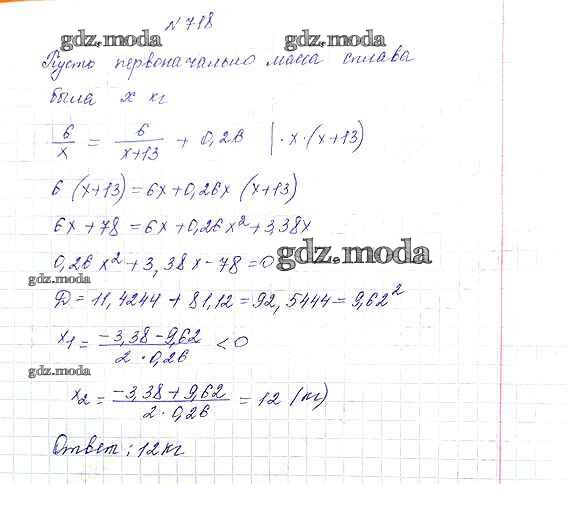 № 718
gdz.moda gdz.moda
Пусть первоначально масса сплава
была x кг
6/x = 6/(x+13) + 0,26 | · x · (x+13)
6 (x+13) = 6x + 0,26x (x+13)
6x + 78 = 6x + 0,26x² + 3,38x
gdz.moda
0,26x² + 3,38x - 78 = 0
gdz.moda
Д = 11,4244 + 81,12 = 92,5444 = 9,62²
x₁ = (-3,38 - 9,62)/(2 · 0,26) < 0
gdz.moda
x₂ = (-3,38 + 9,62)/(2 · 0,26) = 12 (кг)
Ответ: 12 кг